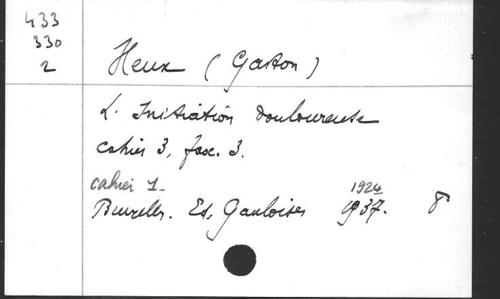 433
330
2
Heux (Gaston)
L'Initiation douloureuse
cahier 3, fasc. 3.
cahier 1_
1924
Bruxelles. Ed. Gauloises 1937. 8